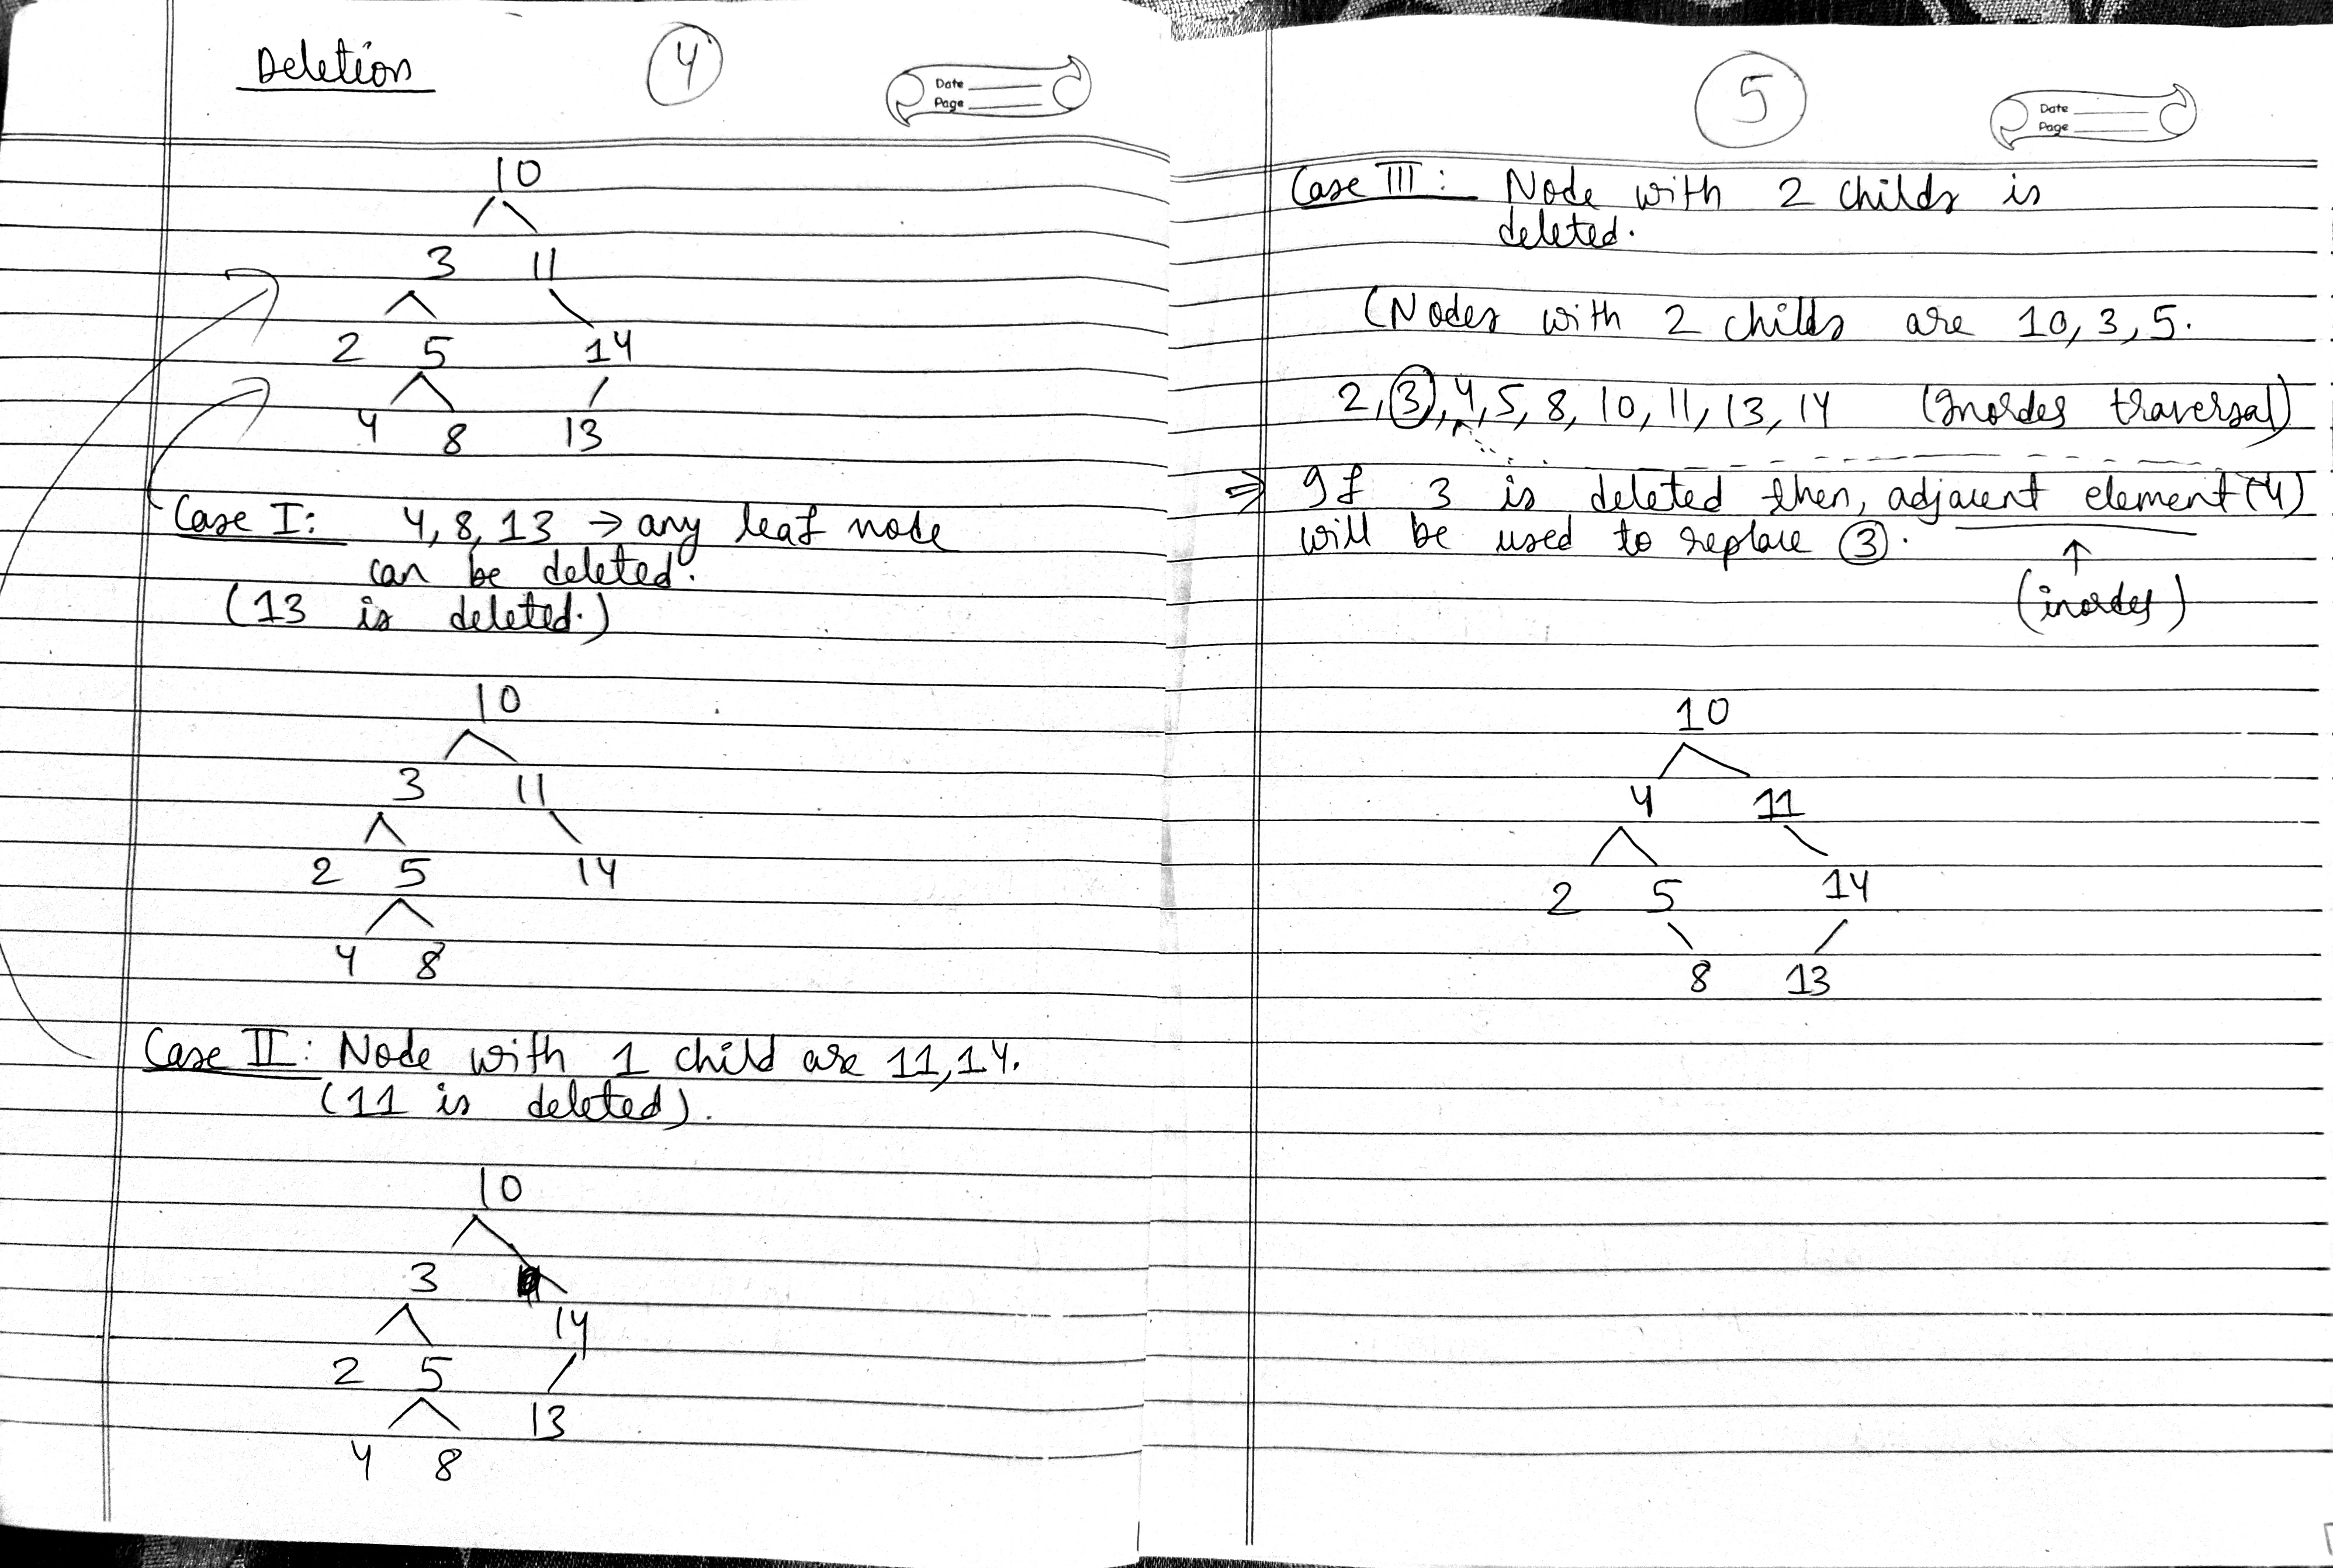 Deletion
4
Date
Page
10
3 11
2 5 14
4 8 13
Case I: 4, 8, 13 → any leaf node
can be deleted.
(13 is deleted.)
10
3 11
2 5 14
4 8
Case II: Node with 1 child are 11, 14.
(11 is deleted).
10
3
14
2 5
13
4 8
5
Date
Page
Case III: Node with 2 childs is
deleted.
(Nodes with 2 childs are 10, 3, 5.
2, 3, 4, 5, 8, 10, 11, 13, 14 (Inorder traversal)
⇒ If 3 is deleted then, adjacent element (4)
will be used to replace 3.
↑
(inorder)
10
4 11
2 5 14
8 13